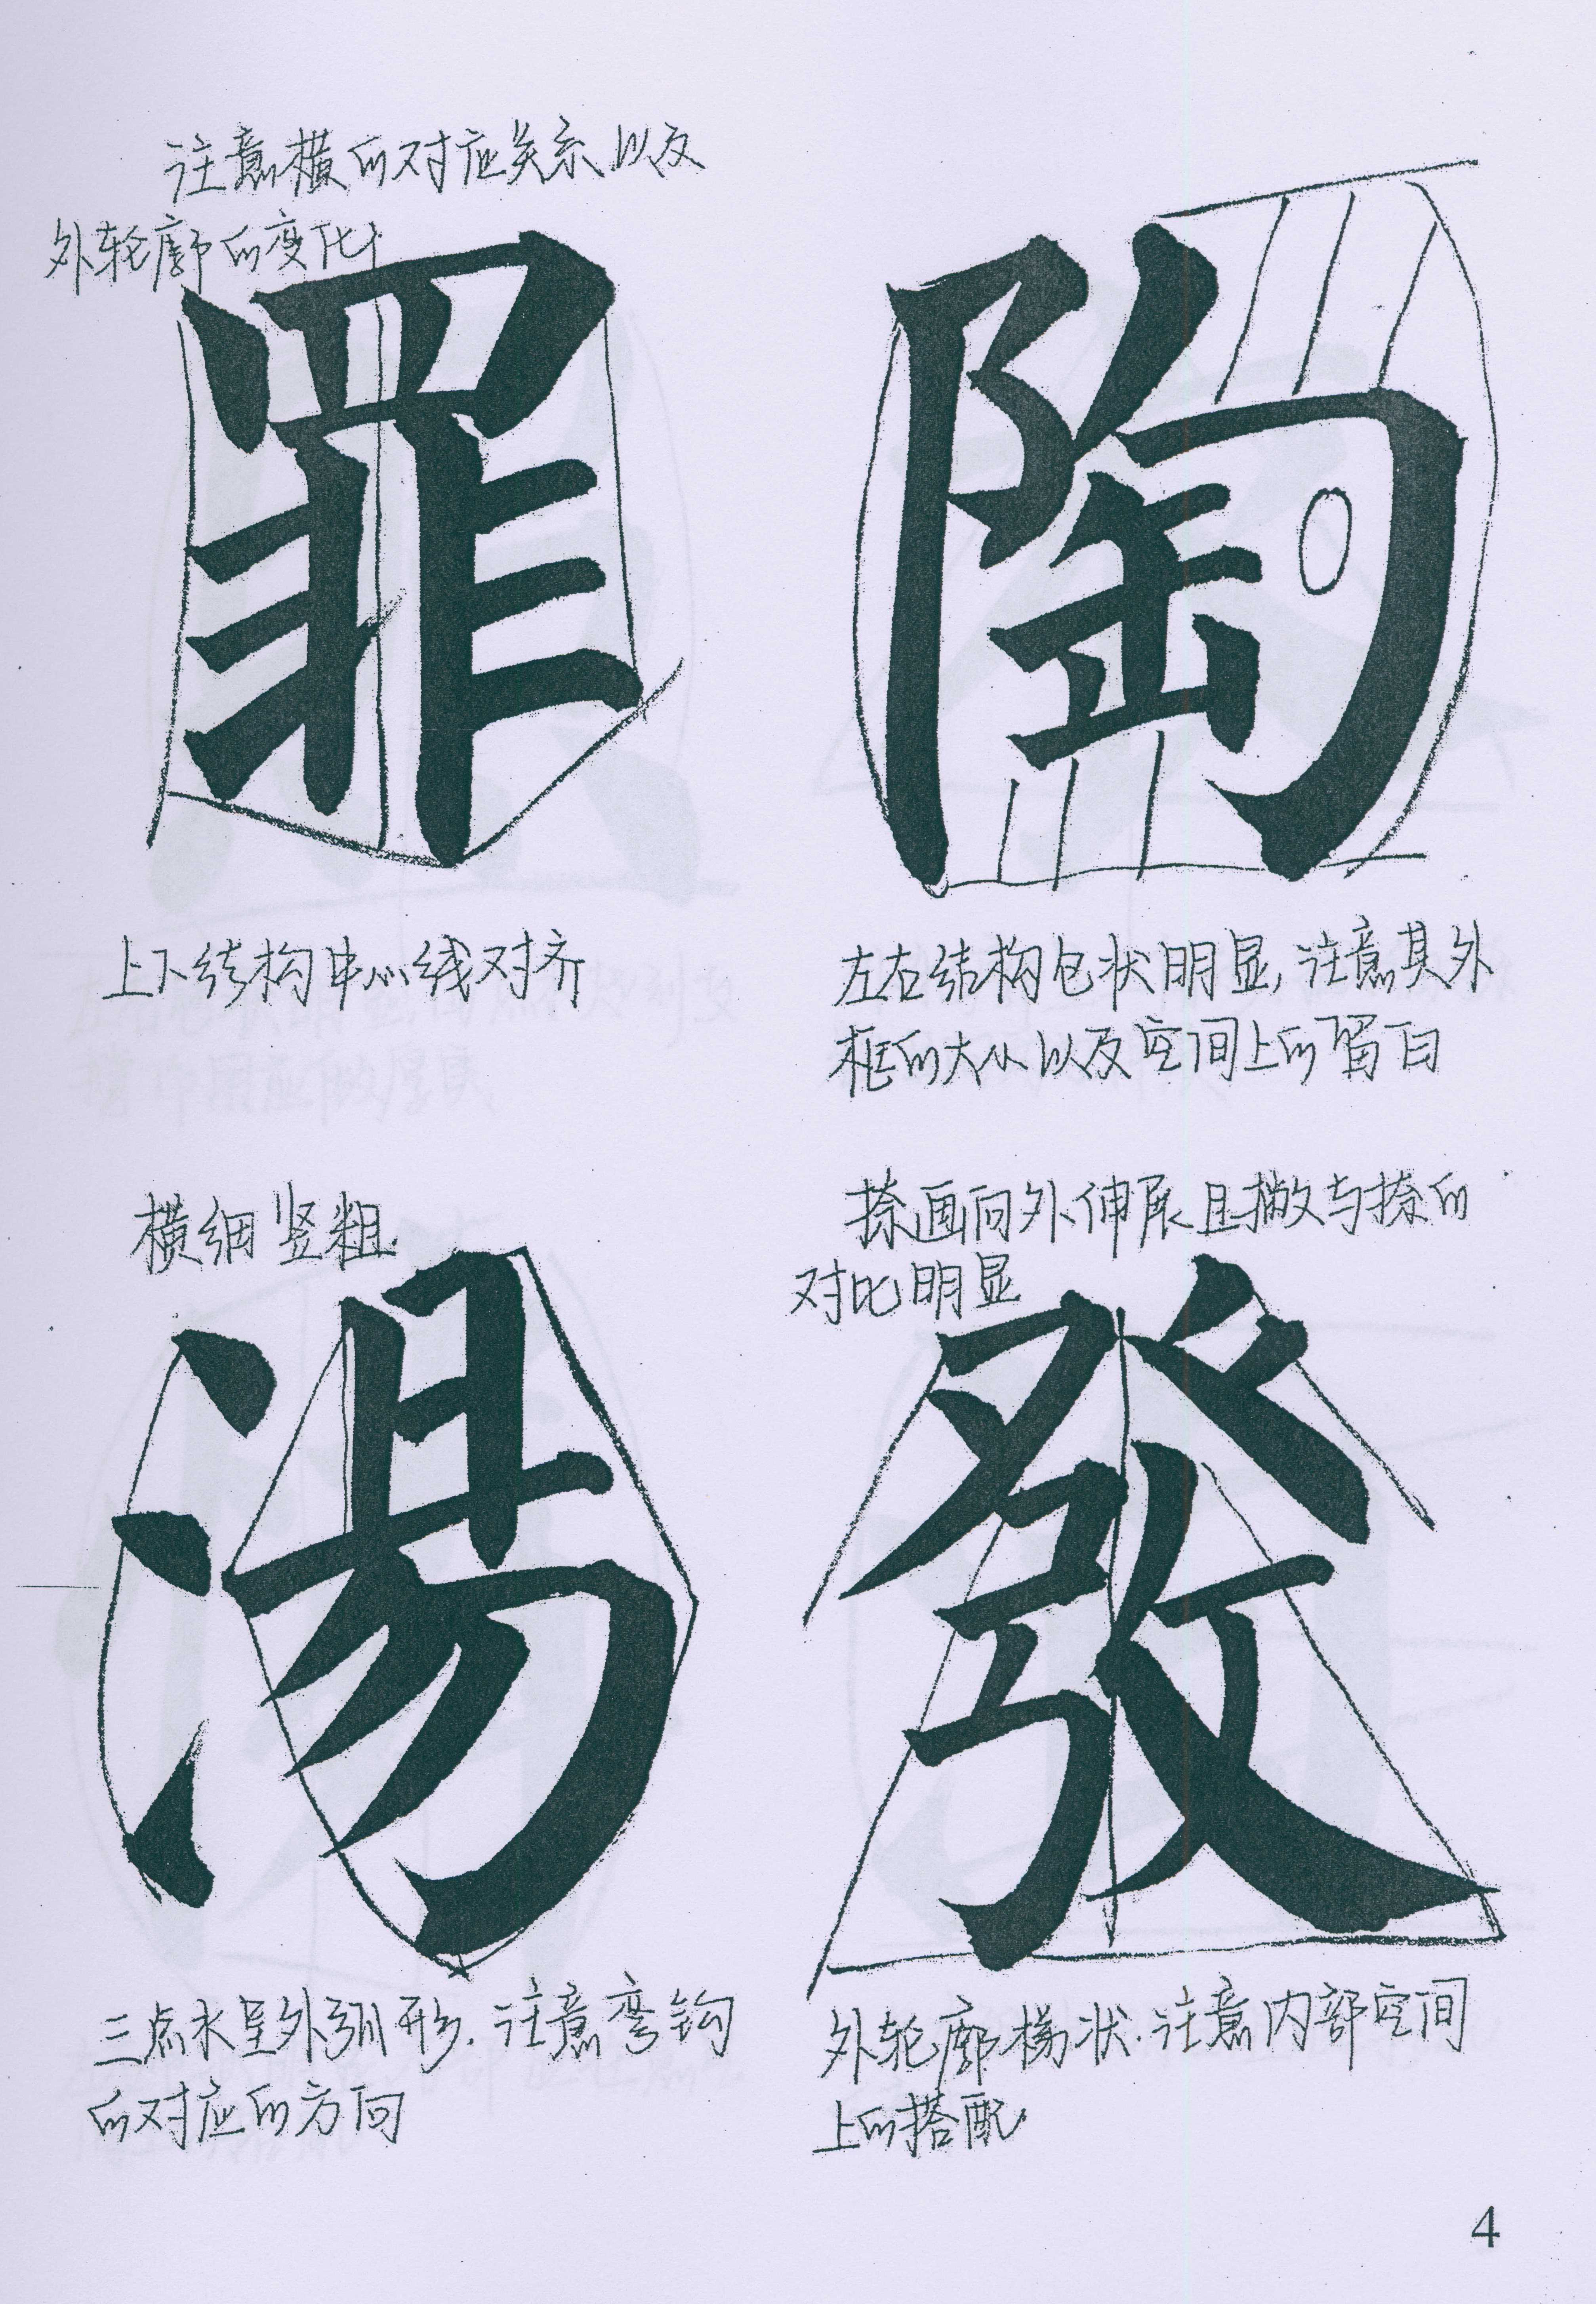 注意横的对应关系以及
外轮廓的变化
罪
上下结构中心线对齐
陶
左右结构包状明显,注意其外
框的大小以及空间上的留白
横细竖粗.
湯
三点水呈外弧形.注意弯钩
的对应的方向
捺画向外伸展且撇与捺的
对比明显
發
外轮廓梯状.注意内部空间
上的搭配
4